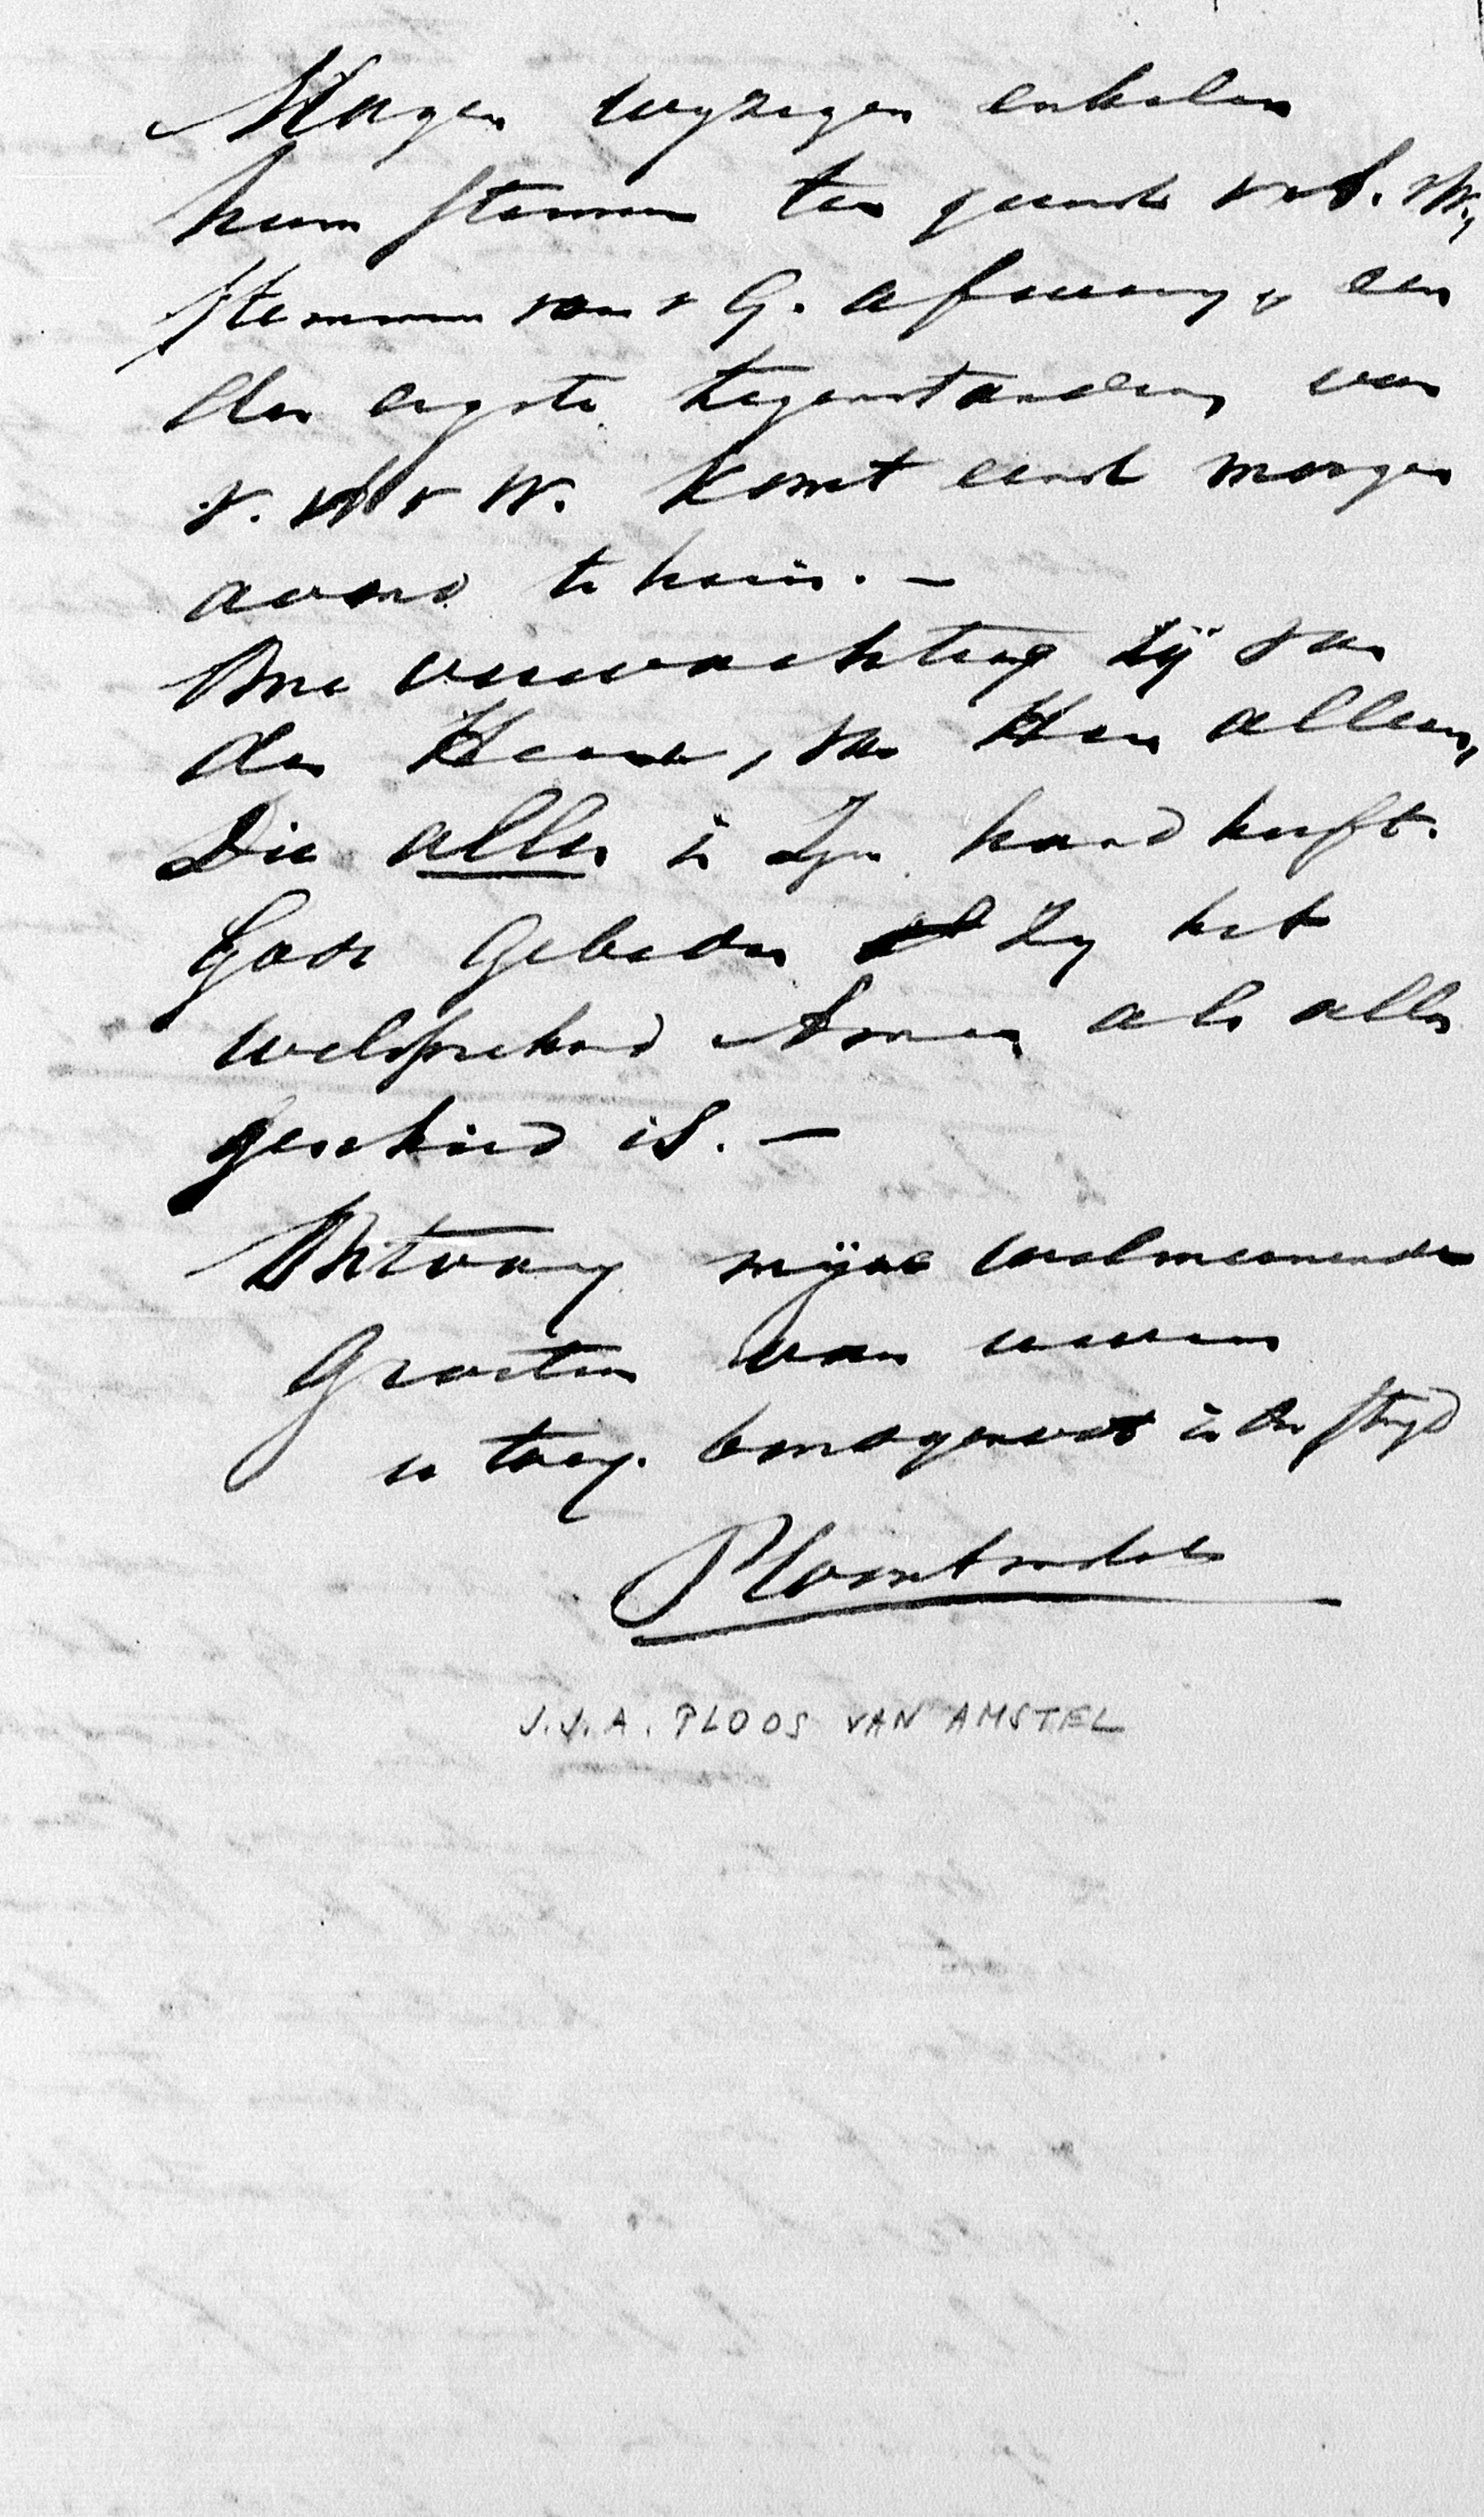 Mogen wyzigen enkelen
hun stemmen ten gunste v. d. W.,
stemmen van v G. afwezig, een
der ergste tegenstanders van
v. d W. komt eerst morgen
avond te huis. —
Onze verwachting zij van
den Heere, van Hem alleen,
Die alles in Zyn hand heeft.
Gode gebeden Zy het
welsprekend Amen als alles
geschied is. —
Ontvang mijne welmeenende
Groeten van uwen
u toeg. bondgenoot in den stryd
PlovAmstel
J.J.A. PLOOS VAN AMSTEL